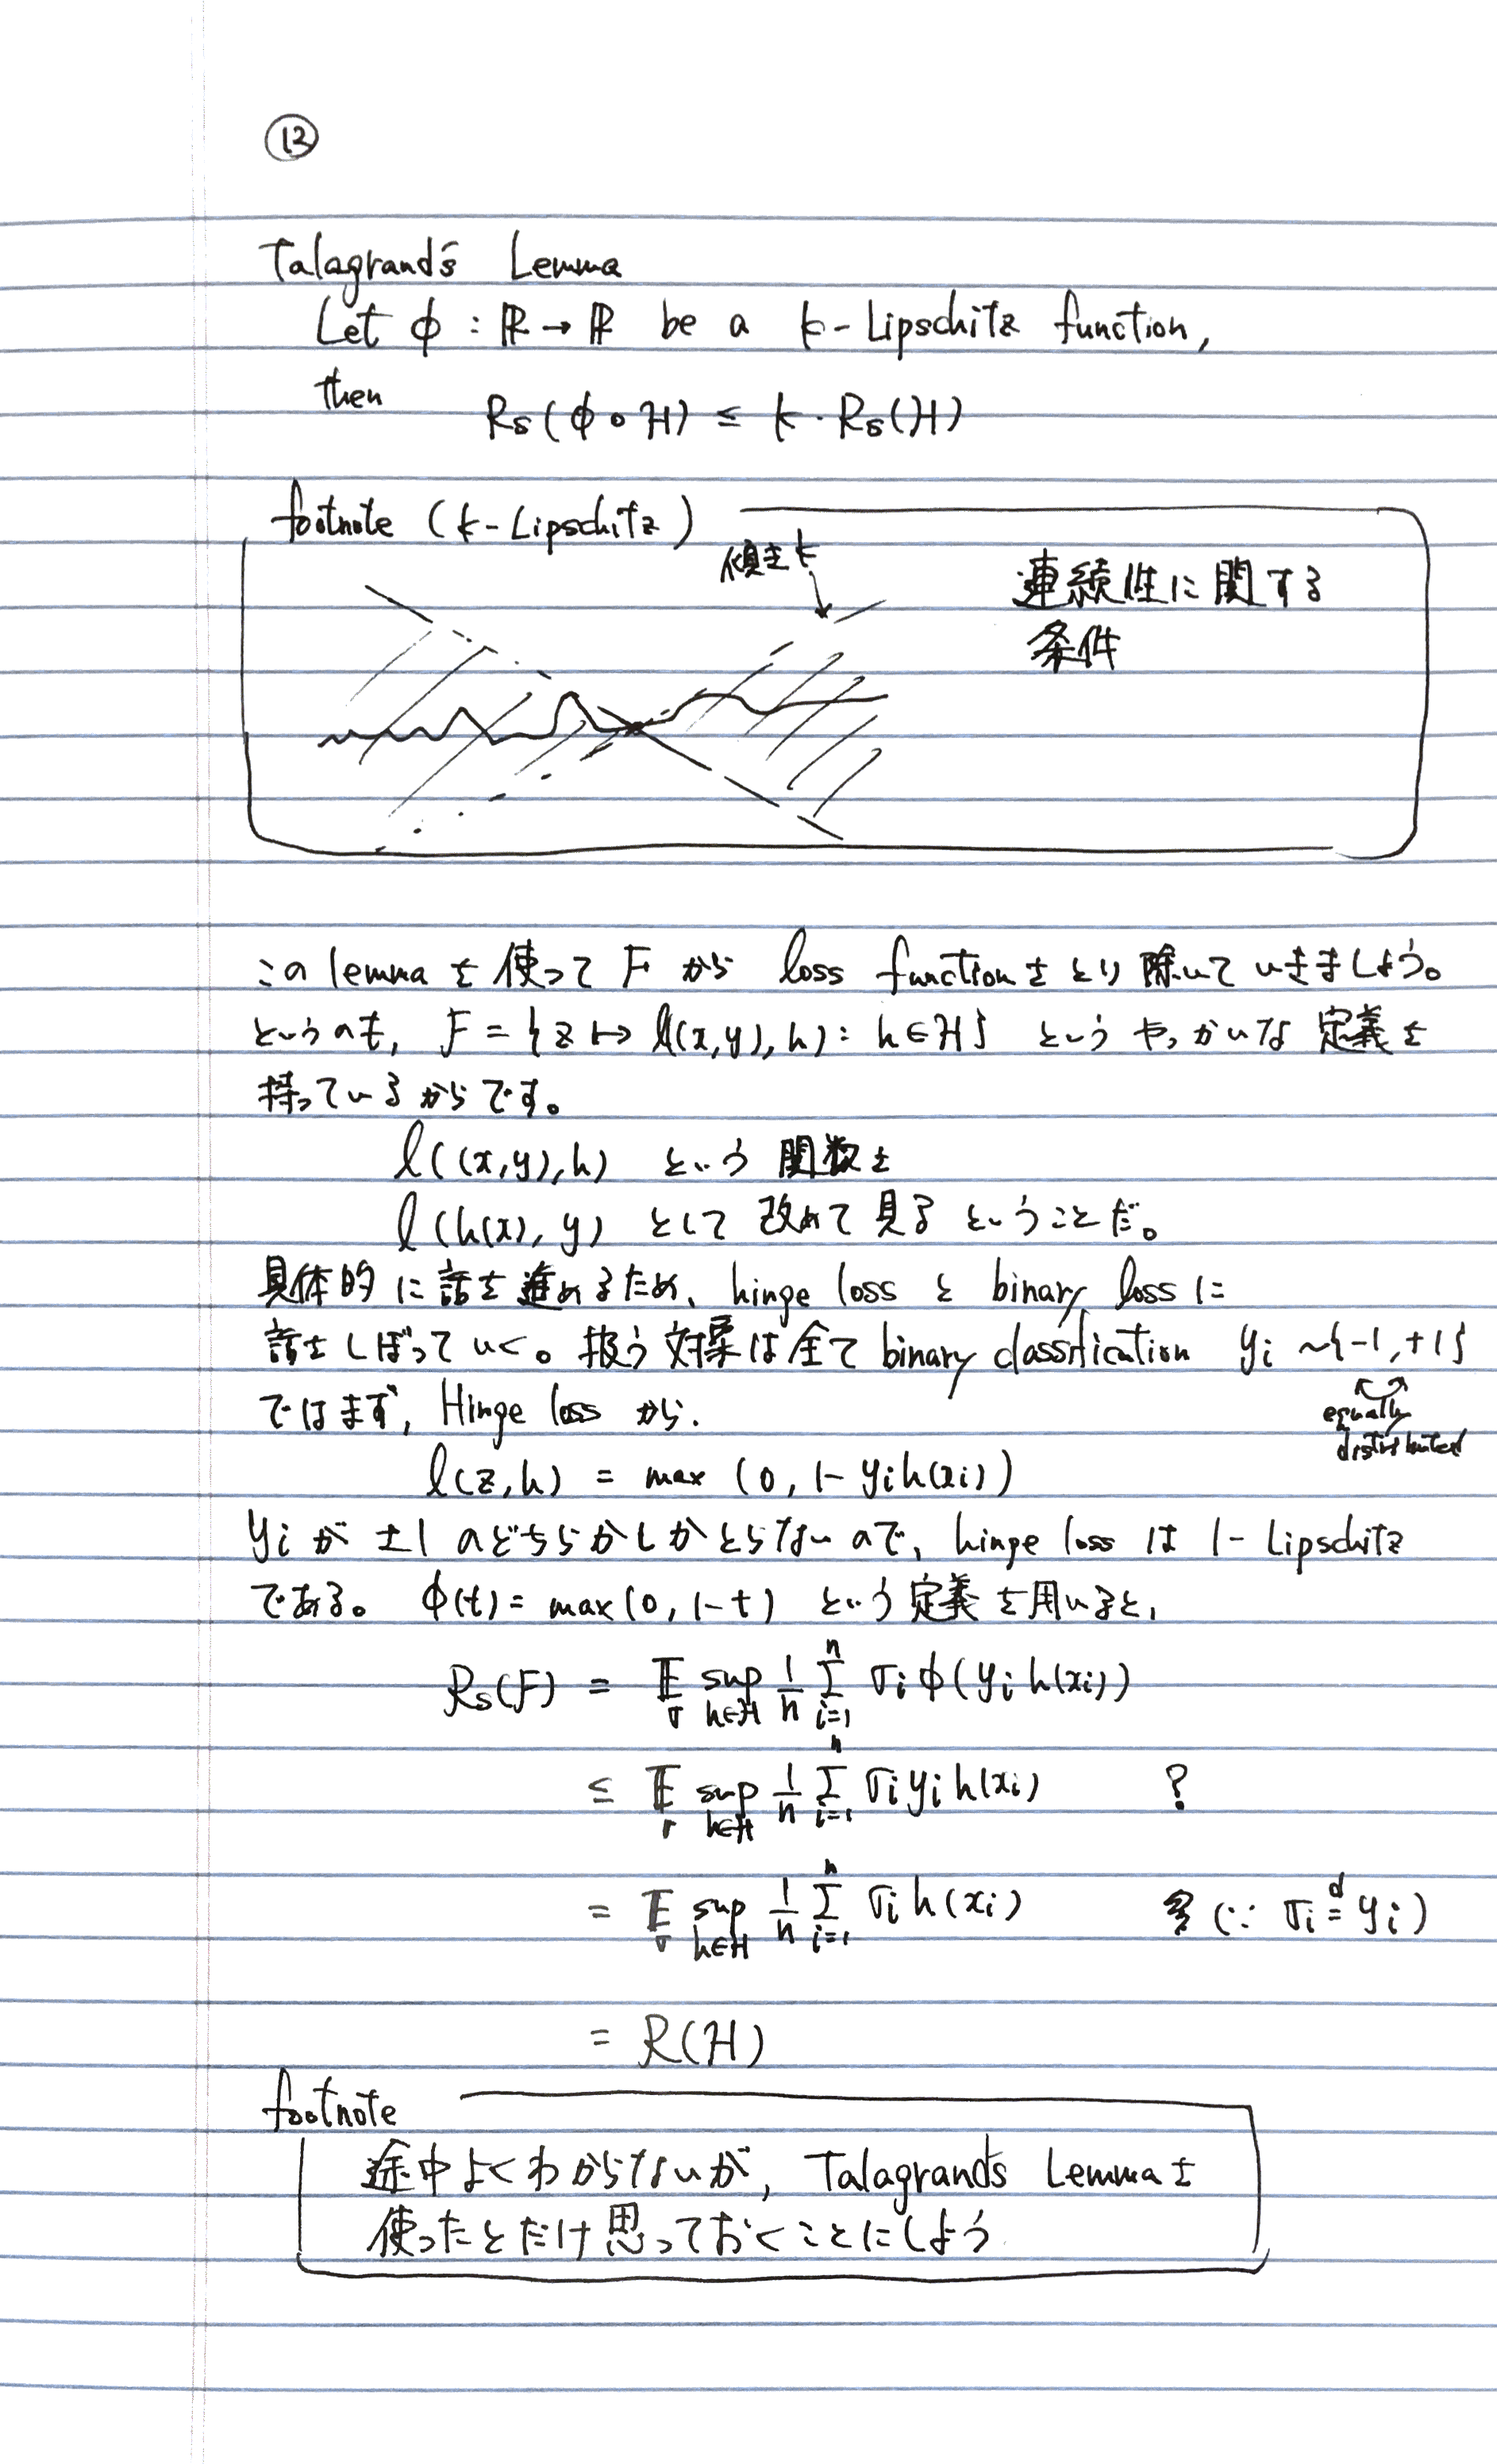 ⑫
Talagrand's Lemma
Let φ : ℝ → ℝ be a k-Lipschitz function,
then R_S(φ∘H) ≤ k · R_S(H)
footnote (k-Lipschitz)
傾きk
連続性に関する
条件
この lemma を 使って F から loss function をとり除いていきましょう。
というのも, F = { z ↦ l(x,y), h) : h∈H } という やっかいな 定義を
持っているからです。
l((x,y),h) という 関数を
l(h(x), y) として 改めて見る ということだ。
具体的に話を進めるため、hinge loss と binary loss に
話をしぼっていく。扱う対象は全て binary classification y_i ~{-1,+1}
equally
distributed
ではまず, Hinge loss から.
l(z,h) = max (0, 1- y_i h(x_i))
y_i が ±1 のどちらかしかとらないので、hinge loss は 1-Lipschitz
である。 φ(t) = max(0, 1-t) という定義を用いると,
R_S(F) = 𝔼_σ sup_{h∈H} 1/n Σ_{i=1}^n σ_i φ(y_i h(x_i))
≤ 𝔼_σ sup_{h∈H} 1/n Σ_{i=1}^n σ_i y_i h(x_i) ?
= 𝔼_σ sup_{h∈H} 1/n Σ_{i=1}^n σ_i h(x_i) (∵ σ_i =^d y_i)
= R(H)
footnote
途中よくわからないが, Talagrand's Lemmaを
使ったとだけ思っておくことにしよう